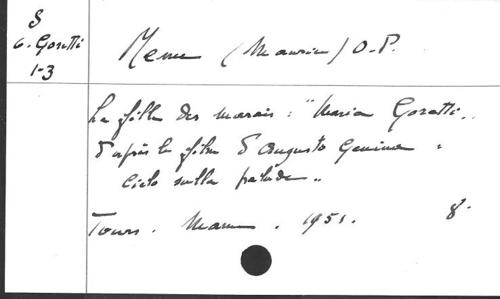 S
G. Goretti
1-3
Mesnu (Maurice) O.P.
La fille des marais : "Maria Goretti"
d'après le film d'Augusto Genina :
Cielo sulla palude".
Tours. Mame. 1951. 8°